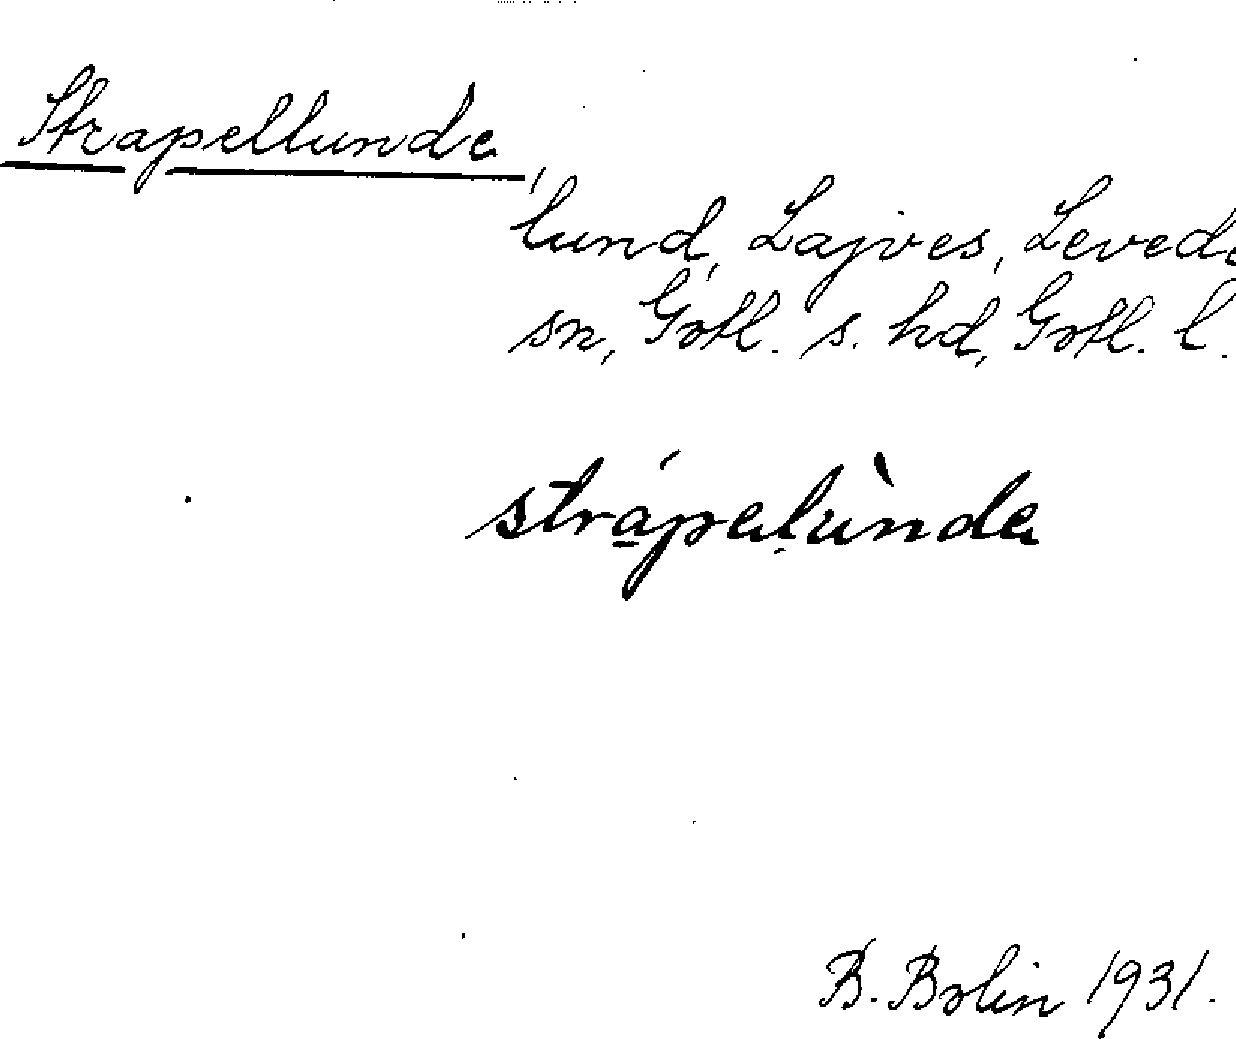 Strapellunde,
lund, Lajves, Levede
sn, Gotl. s. hd, Gotl. l.
strápelùnde
B. Bolin 1931.